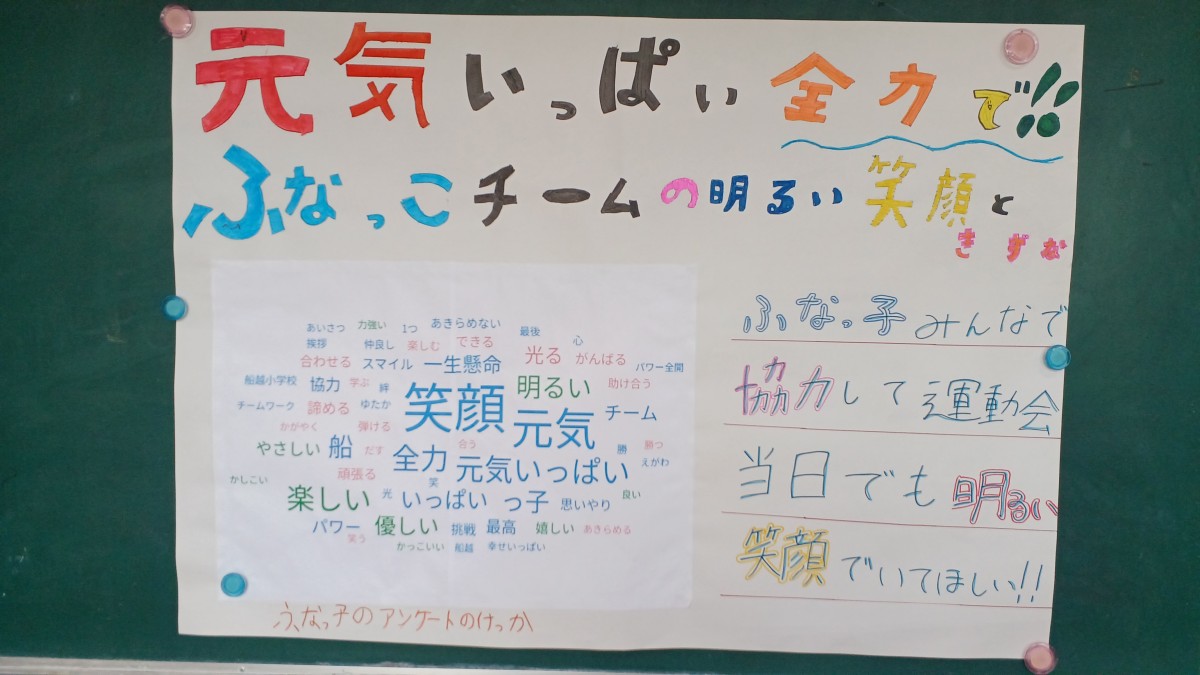 元気いっぱい全力で!!
ふなっこチームの明るい笑顔と
きずな
あいさつ 力強い 1つ あきらめない 最後
挨拶 仲良し 楽しむ できる 心
合わせる スマイル 一生懸命 光る がんばる パワー全開
船越小学校 協力 学ぶ 絆 笑顔 明るい 助け合う
チームワーク 諦める ゆたか 元気 チーム
かがやく 弾ける 合う 勝 勝つ
やさしい 船 だす 全力 元気いっぱい えがわ
かしこい 頑張る 笑
楽しい 光 いっぱい っ子 思いやり 良い
パワー 笑う 優しい 挑戦 最高 嬉しい あきらめる
かっこいい 船越 幸せいっぱい
ふなっ子のアンケートのけっか
ふなっ子みんなで
協力して運動会
当日でも明るい
笑顔でいてほしい!!